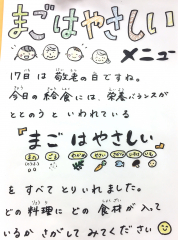 まごはやさしい
メニュー
17日は敬老の日ですね。
今日の給食には、栄養バランスが
ととのうといわれている
『まごはやさしい』
をすべてとりいれました。
どの料理にどの食材が入って
いるかさがしてみてください